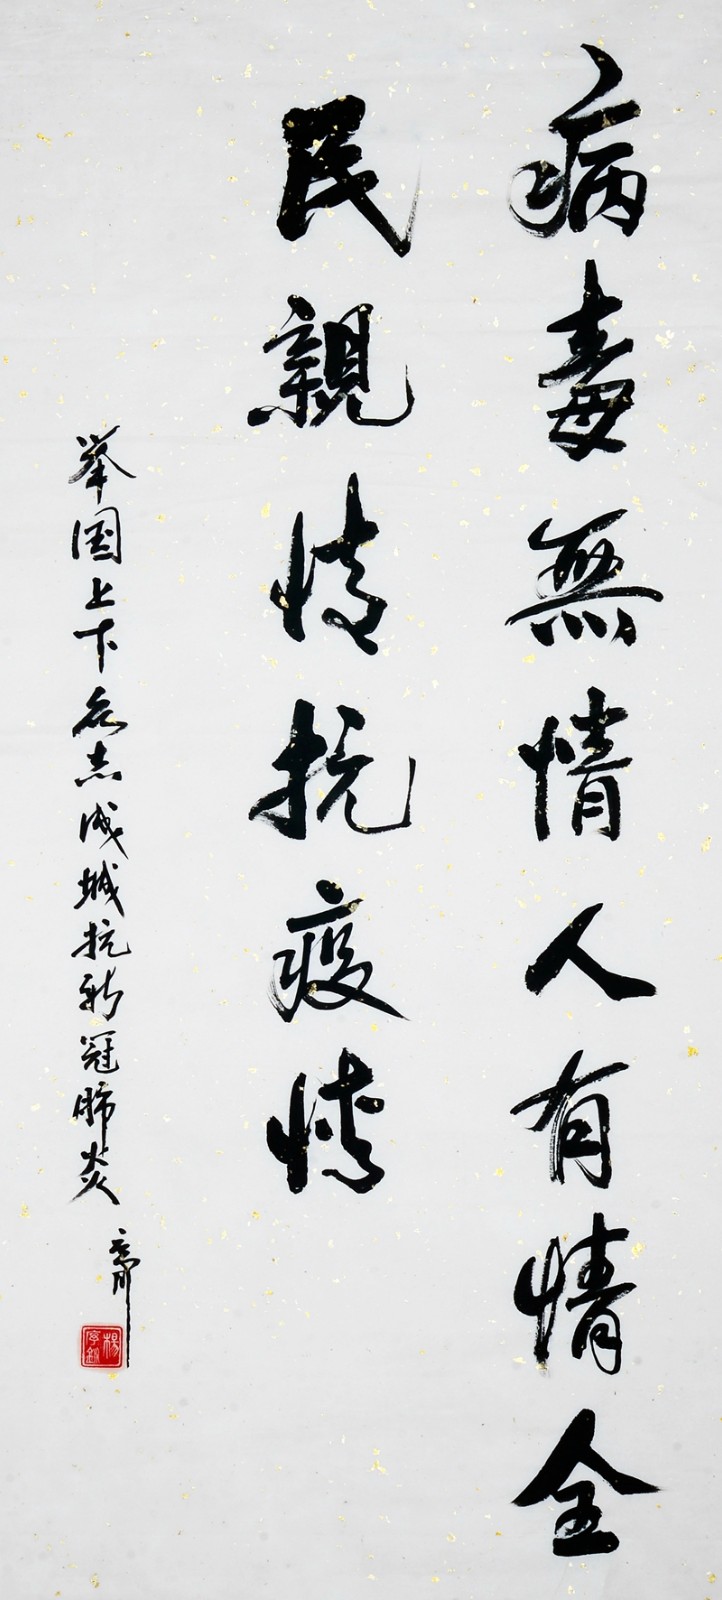 病毒無情人有情全
民親情抗疫情
举国上下众志成城抗新冠肺炎
楊